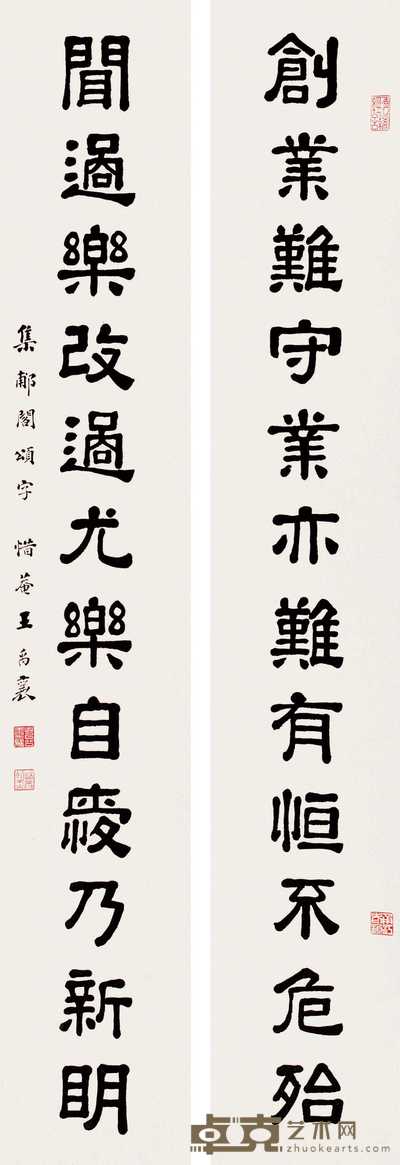 創業難守業亦難有恒不危殆
聞過樂改過尤樂自愛乃新明
集郙閣頌字 惜菴王禹襄
卓克艺术网
zhuokearts.com